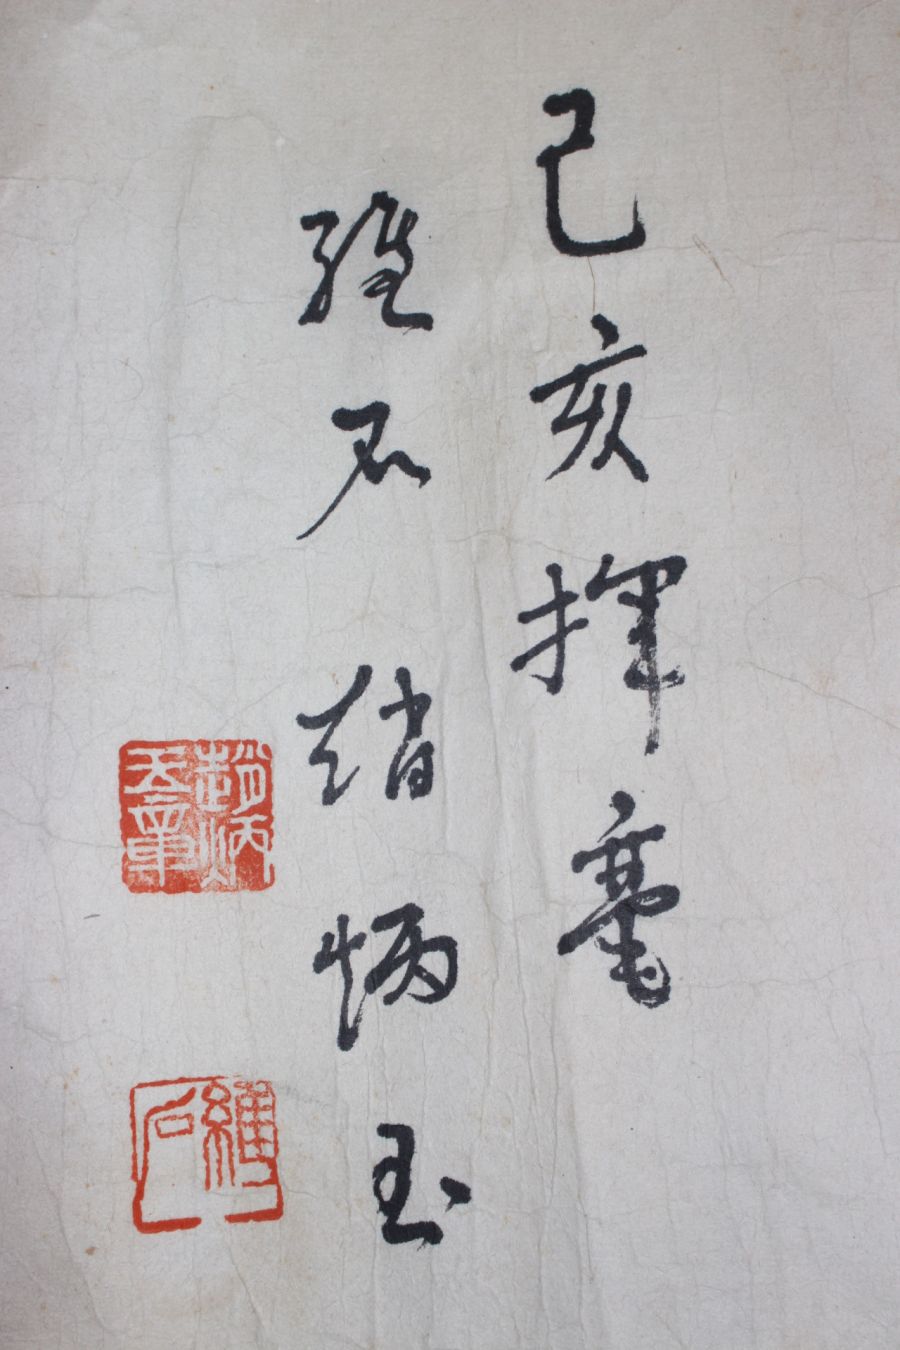 己亥揮毫
石 趙炳玉
趙炳
玉章
石